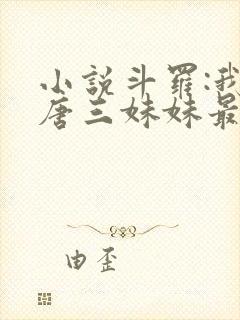 小說斗羅:我
唐三妹妹最
由歪